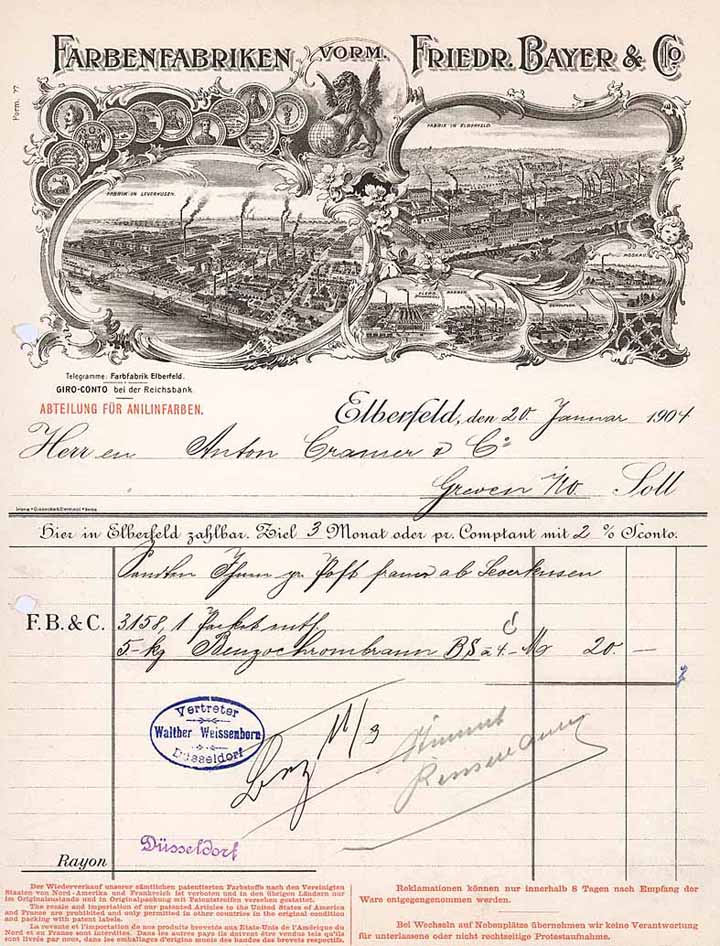 Form. 77
FARBENFABRIKEN VORM. FRIEDR. BAYER & Co.
FABRIK IN ELBERFELD.
FABRIK IN LEVERKUSEN.
MOSKAU
BARMEN
SCHELPLOH
Telegramme: Farbfabrik Elberfeld.
GIRO-CONTO bei der Reichsbank
ABTEILUNG FÜR ANILINFARBEN.
Elberfeld, den 20. Januar 1904
Herren Anton Cramer & Co
Greven i/W. Soll
Hier in Elberfeld zahlbar. Ziel 3 Monat oder pr. Comptant mit 2 % Sconto.
Sandten Ihnen pr Post franco ab Leverkusen
F.B.&C. 3158, 1 Packet enth
5 - kg Benzochrombraun BS à 4.- M 20. —
Vertreter
Walther Weissenborn
Düsseldorf
11/3
Düsseldorf
Rayon
Der Wiederverkauf unserer sämtlichen patentierten Farbstoffe nach den Vereinigten
Staaten von Nord-Amerika und Frankreich ist verboten und in den übrigen Ländern nur
im Originalzustande und in Originalpackung mit Patentstreifen versehen gestattet.
The resale and importation of our patented Articles to the United States of America
and France are prohibited and only permitted in other countries in the original condition
and packing with patent labels.
La revente et l'importation de nos produits brevetés aux Etats-Unis de l'Amérique du
Nord et en France sont interdites. Dans les autres pays ils doivent être vendus tels qu'ils
sont livrés par nous, dans les emballages d'origine munis des bandes des brevets respectifs.
Reklamationen können nur innerhalb 8 Tagen nach Empfang der
Ware entgegengenommen werden.
Bei Wechseln auf Nebenplätze übernehmen wir keine Verantwortung
für unterlassene oder nicht rechtzeitige Protestaufnahme.